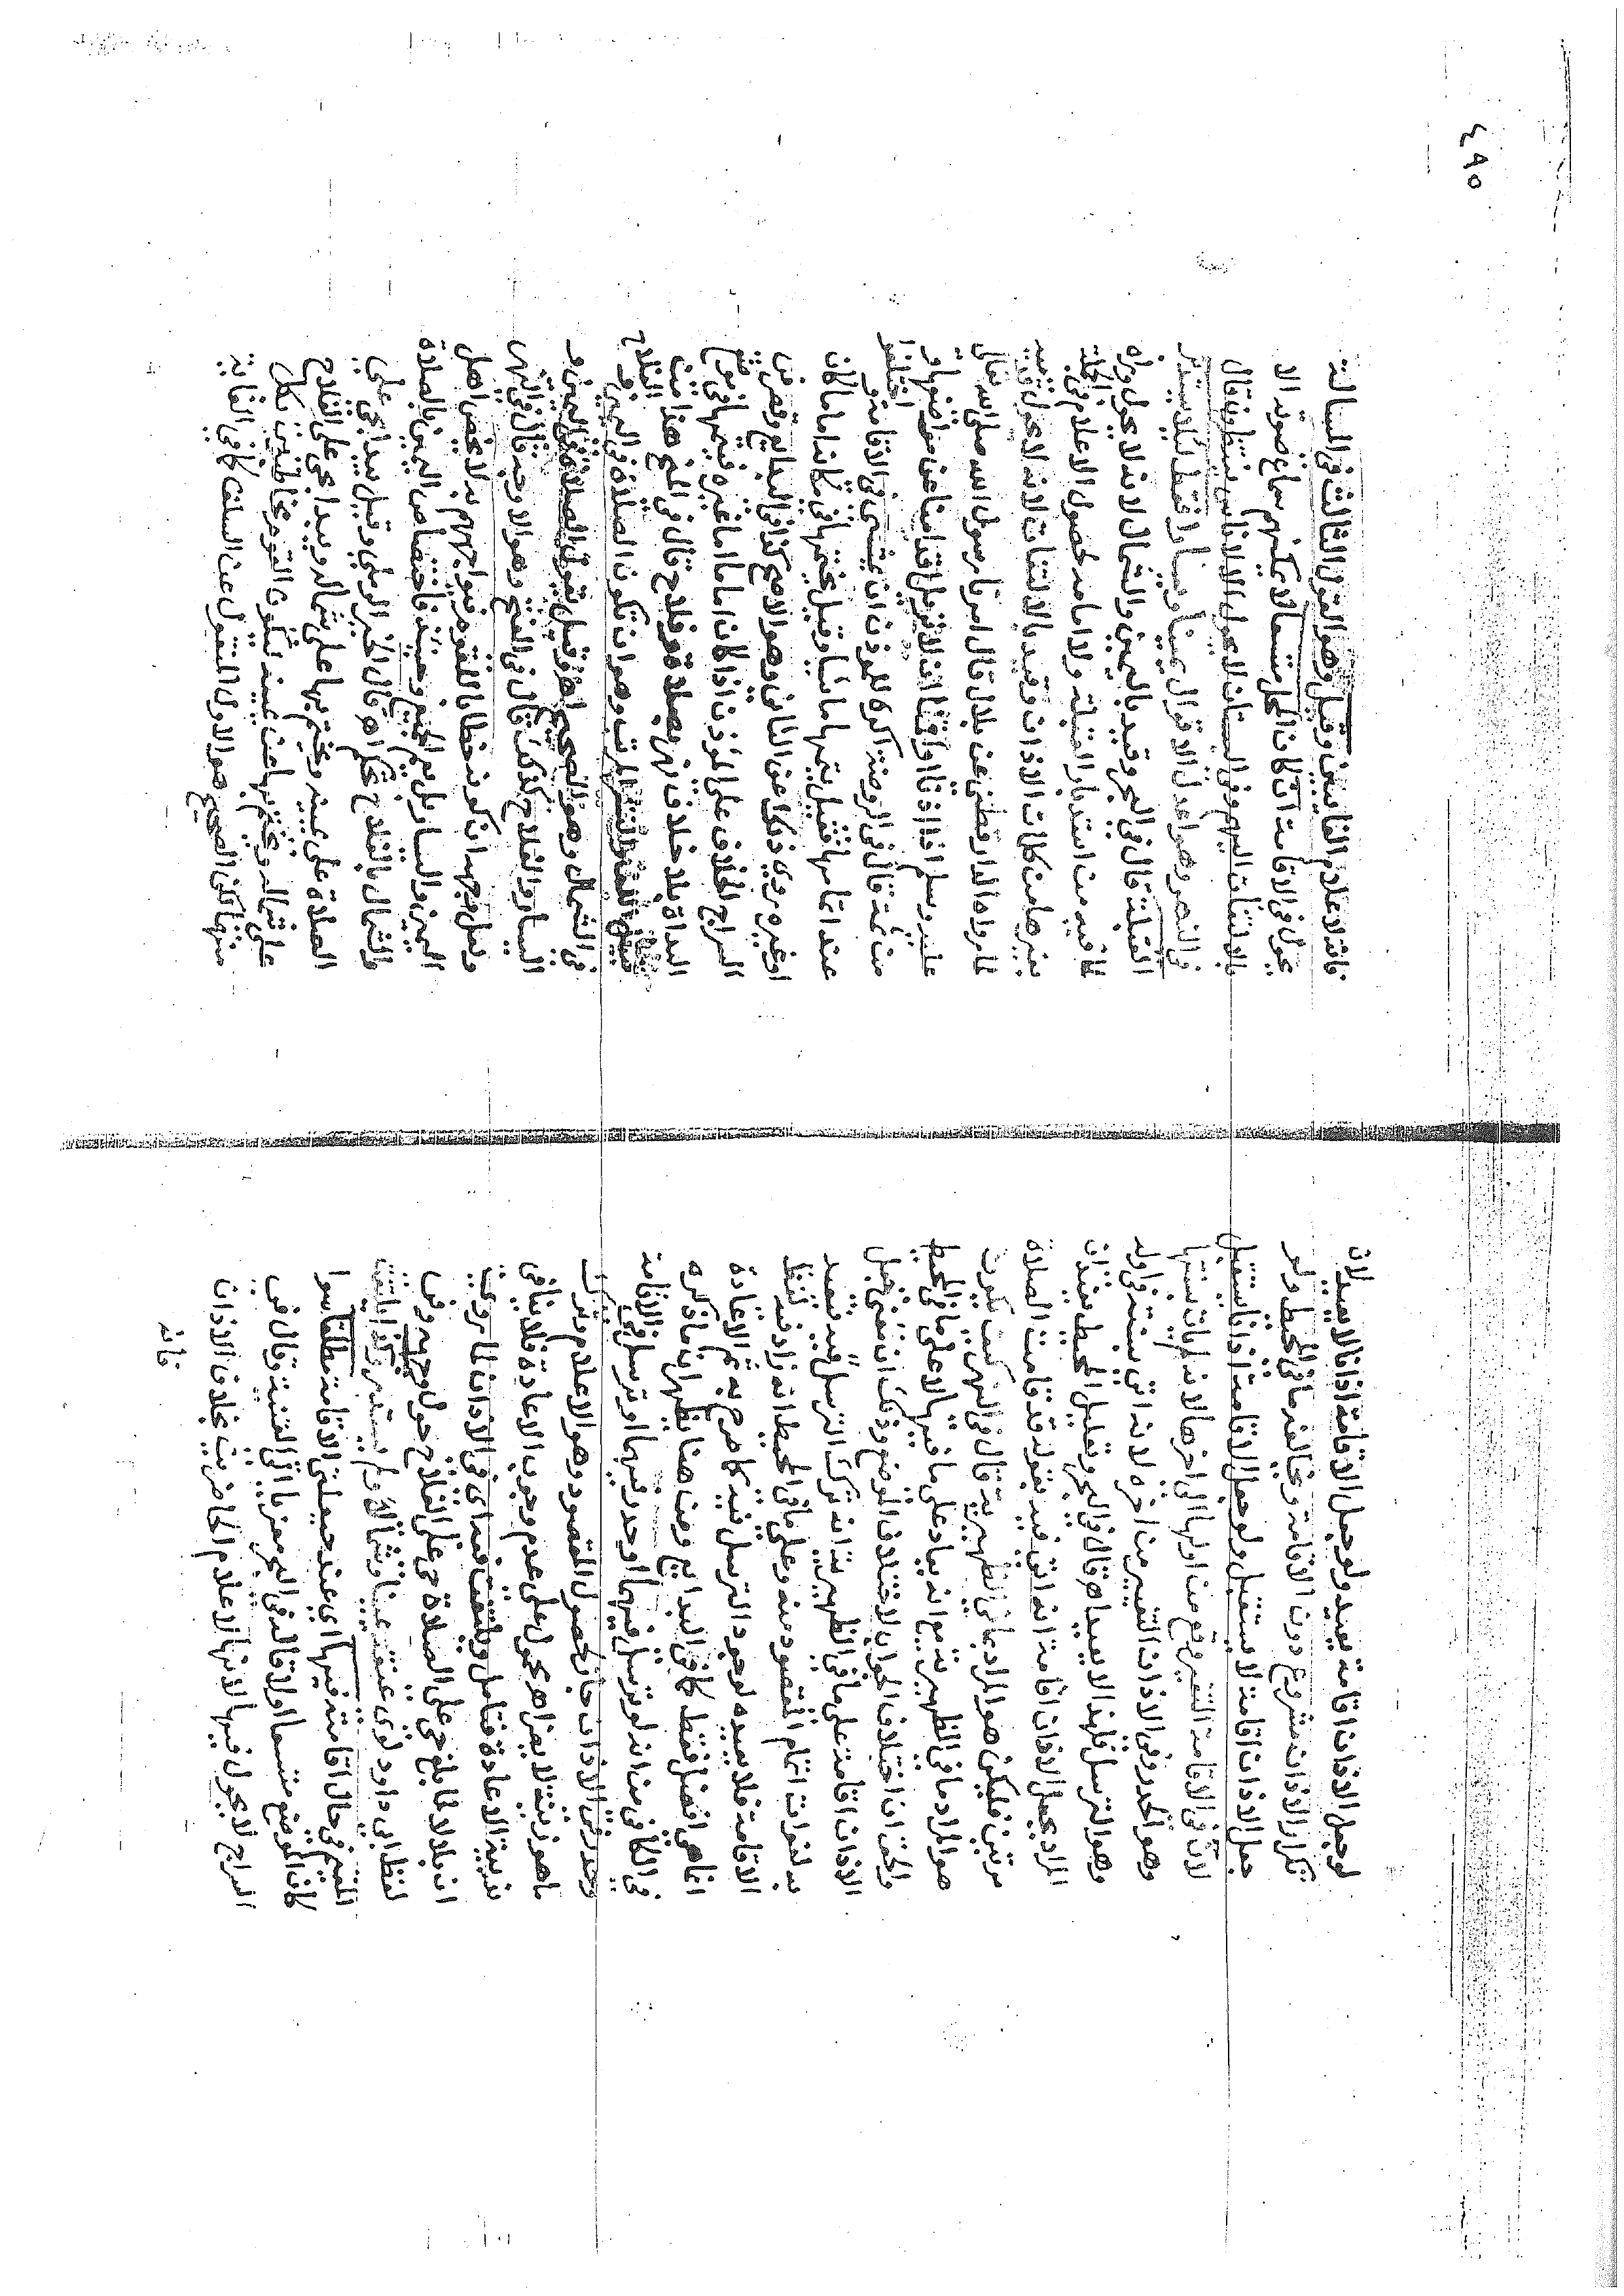 ٤٩٥
لوجعل الاذان اقامة يعيد ولو جعل الاقامة اذانا لا يعيد لان
تكرار الاذان مشروع دون الاقامة ويخالفه ما في المحيط ولو
جعل الاذان اقامة لا يستقبل ولو جعل الاقامة اذانا يستقبل
لان في الاقامة التغير وقع من اولها الى اخرها لانه لم يات بسنتها
وهو الحدر وفي الاذان التغير من اخره لانه اتى بسنته في اوله
وهو الترسل فلهذا لا يعيد اهـ قال في البحر وتعليل المحيط يفيد ان
المراد بجعل الاذان اقامة انه اتى فيه بقوله قد قامت الصلاة
مرتين فليكن هو المراد بما في الظهيرية قال في النهر كيف يكون
هو المراد مما في الظهيرية مع انه يعاد على ما فيها لا على ما في المحيط
والحق ان اختلاف الجواب لاختلاف الموضوع وذلك ان معنى جعل
الاذان اقامة على ما في الظهيرية انه ترك الترسل فيه فيعيد
به لفوات تمام المقصود منه وعلى ما في المحيط انه زاد فيه لفظ
الاقامة فلا يعيده لوجود الترسل فيه كما صرح به ثم الاعادة
انما هي افضل فقط كما في البدايع ومن هنا يظهر ان ما ذكره
في الكافي من انه لو ترسل فيهما او حدر فيهما او ترسل في الاقامة
وحدر في الاذان جاز لحصول المقصود وهو الاعلام وترك
ما هو زينة لا يضر اهـ محمول على عدم وجوب الاعادة فلا ينافي
سنية الاعادة فتامل ويلتفت فيه اي في الاذان لما روي
ان بلالا لما بلغ حي على الصلاة حي على الفلاح حول وجهه وفي
لفظ ابي داود لوى عنقه يمينا وشمالا ولم يستدر وكذا يلتفت
المقيم في حال اقامته فيها اي عند حيعلتي الاقامة مطلقا سوا
كان الموضع متسعا اولا قاله في البحر معزيا الى القنية وقال في
السراج لا يحول فيها لانها لاعلام الحاضرين بخلاف الاذان
فانه
فانه لاعلام الغائبين وقيل وهو القول الثالث في المسالة
يحول في الاقامة ان كان المحل متسعا لا يمكنهم سماع صوته الا
بالالتفات اليهم وفي البستان لا يحول الا لاناس ينتظرون قال
في النهر وهو اعدل الاقوال يمينا ويسارا فقط لئلا يستدبر
القبلة قال في البحر وقيد باليمين والشمال لانه لا يحول وراه
لما فيه من استدبار القبلة ولا امامه لحصول الاعلام في الجملة
بغيرها من كلمات الاذان وقيد بالالتفات لانه لا يحول قدميه
لما رواه الدارقطني عن بلال قال امرنا رسول الله صلى الله تعالى
عليه وسلم اذا اذنا او اقمنا ان لا نزيل اقدامنا عن مواضعها و
من ثمة قال في الروضة اكره للموذن ان يمشي في الاقامة و اختلفوا
عند اتمامها فقيل يتمها ماشيا وقيل يختمها في مكانه اماما كان
او غيره روي ذلك عن الثاني وهو الاصح كذا في البدايع وقصر في
السراج الخلاف على الموذن اذا كان اماما اما غيره فيتمها في موضع
البداة بلا خلاف نهر بصلاة وفلاح قال في المنح هذا من
قبيل اللف والنشر المرتب وهو ان تكون الصلاة في اليمين و الفلاح
في الشمال وهو الصحيح اهـ وقيل يحول الصلاة في اليمين و
اليسار والفلاح كذلك قال في الفتح وهو الاوجه قال في النهر
ولعل وجهه ان كونه خطابا للقوم فيواجههم به لا يخص اهل
اليمين واليسار بل يعم الجميع وحينئذ فاختصاص اليمين بالصلاة
والشمال بالفلاح تحكم اهـ قال الخير الرملي وقيل يبدا بحي على
الصلاة على يمينه ويختم بها على شماله ويبدا بحي على الفلاح
على شماله ويختم بها عن يمينه ليكون القوم مخاطبين بكل
منها لكن الصحيح هو الاول المنقول عن السلف كما في الغاية